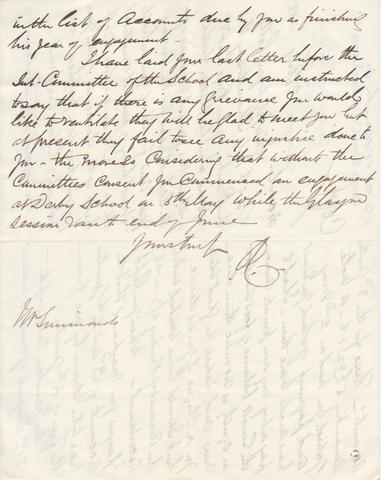 in the list of Accounts due by you as finishing
his year of engagement.
I have laid your last letter before the
Sub-Committee of the School and am instructed
to say that if there is any grievance you would
like to ventilate they will be glad to meet you but
at present they fail to see any injustice done to
you - the more so considering that without the
Committees consent you commenced an engagement
at Derby School on 5th May while the Glasgow
session ran to end of June
Yours truly
Mr Simmonds